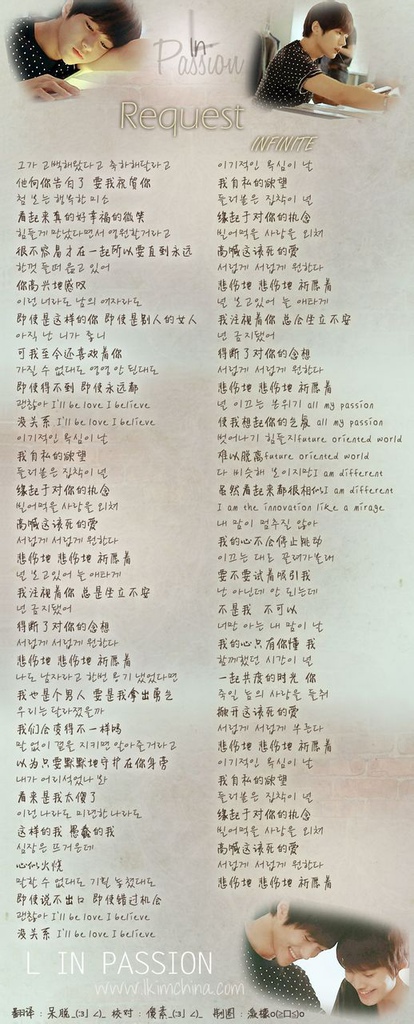 In
Passion
Request
INFINITE
그가 고백해왔다고 축하해달라고
他向你告白了 要我祝贺你
첨 보는 행복한 미소
看起来真的好幸福的微笑
힘들게 만났다면서 영원할거라고
很不容易才在一起所以要直到永远
한껏 들떠 읊고 있어
你高兴地感叹
이런 너라도 남의 여자라도
即使是这样的你 即使是别人的女人
아직 난 니가 좋니
可我至今还喜欢着你
가질 수 없대도 영영 안 된대도
即使得不到 即使永远都
괜찮아 I'll be love I believe
没关系 I'll be love I believe
이기적인 욕심이 날
我自私的欲望
들러붙은 집착이 널
缘起于对你的执念
빌어먹을 사랑을 외쳐
高喊这该死的爱
서럽게 서럽게 원한다
悲伤地 悲伤地 祈愿着
널 보고있어 늘 애타게
我注视着你 总是坐立不安
넌 금지됐어
得断了对你的念想
서럽게 서럽게 원한다
悲伤地 悲伤地 祈愿着
나도 남자라고 한번 용기 냈었다면
我也是个男人 要是我拿出勇气
우리는 달라졌을까
我们会变得不一样吗
말 없이 곁을 지키면 알아줄거라고
以为只要默默地守护在你身旁
내가 어리석었나 봐
看来是我太傻了
이런 나라도 미련한나라도
这样的我 愚蠢的我
심장은 뜨거운데
心似火烧
말할 수 없대도 기횔 놓쳤대도
即使说不出口 即使错过机会
괜찮아 I'll be love I believe
没关系 I'll be love I believe
이기적인 욕심이 날
我自私的欲望
들러붙은 집착이 널
缘起于对你的执念
빌어먹을 사랑을 외쳐
高喊这该死的爱
서럽게 서럽게 원한다
悲伤地 悲伤地 祈愿着
널 보고있어 늘 애타게
我注视着你 总会坐立不安
넌 금지됐어
得断了对你的念想
서럽게 서럽게 원한다
悲伤地 悲伤地 祈愿着
넌 이끄는 분위기 all my passion
使我想起你的气氛 all my passion
벗어나기 힘들지future oriented world
难以脱离future oriented world
다 비슷해 보이지만I am different
虽然看起来都很相似I am different
I am the innovation like a mirage
내 맘이 멈추질 않아
我的心不会停止跳动
이끄는 대로 끌려가볼래
要不要试着吸引我
난 아닌데 안 되는데
不是我 不可以
너만 아는 내 맘이 난
我的心只有你懂 我
함께했던 시간이 넌
一起共度的时光 你
죽일 놈의 사랑을 들춰
掀开这该死的爱
서럽게 서럽게 부른다
悲伤地 悲伤地 祈愿着
이기적인 욕심이 날
我自私的欲望
들러붙은 집착이 널
缘起于对你的执念
빌어먹을 사랑을 외쳐
高喊这该死的爱
서럽게 서럽게 원한다
悲伤地 悲伤地 祈愿着
L IN PASSION
www.lkimchina.com
翻译：呆脑_(:3」∠)_ 校对：傻素_(:3」∠)_ 制图：o(≧口≦)o